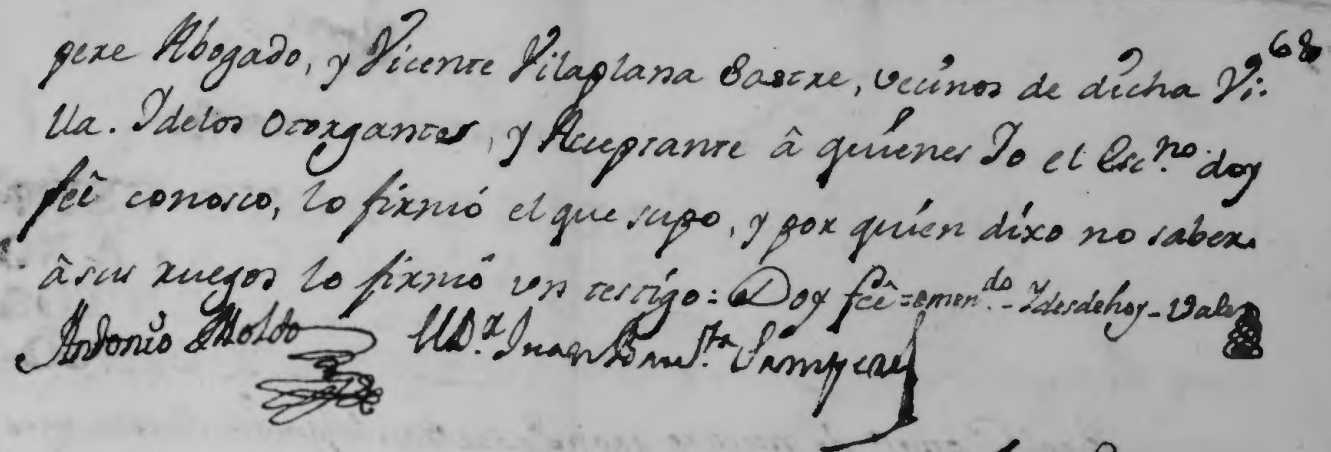 68
pere Abogado, y Vicente Vilaplana Sastre, vecinos de dicha Vi-
lla. Y delos Otorgantes, y Aceptante â quienes Yo el Esc.no doy
feê conosco, lo firmó el que supo, y por quien dixo no saber
â sus ruegos lo firmó un testigo: Doy feê = emen.do - Y desde hoy - Vale
Antonio Moltó Dr. Juan Bau.ta Sempere